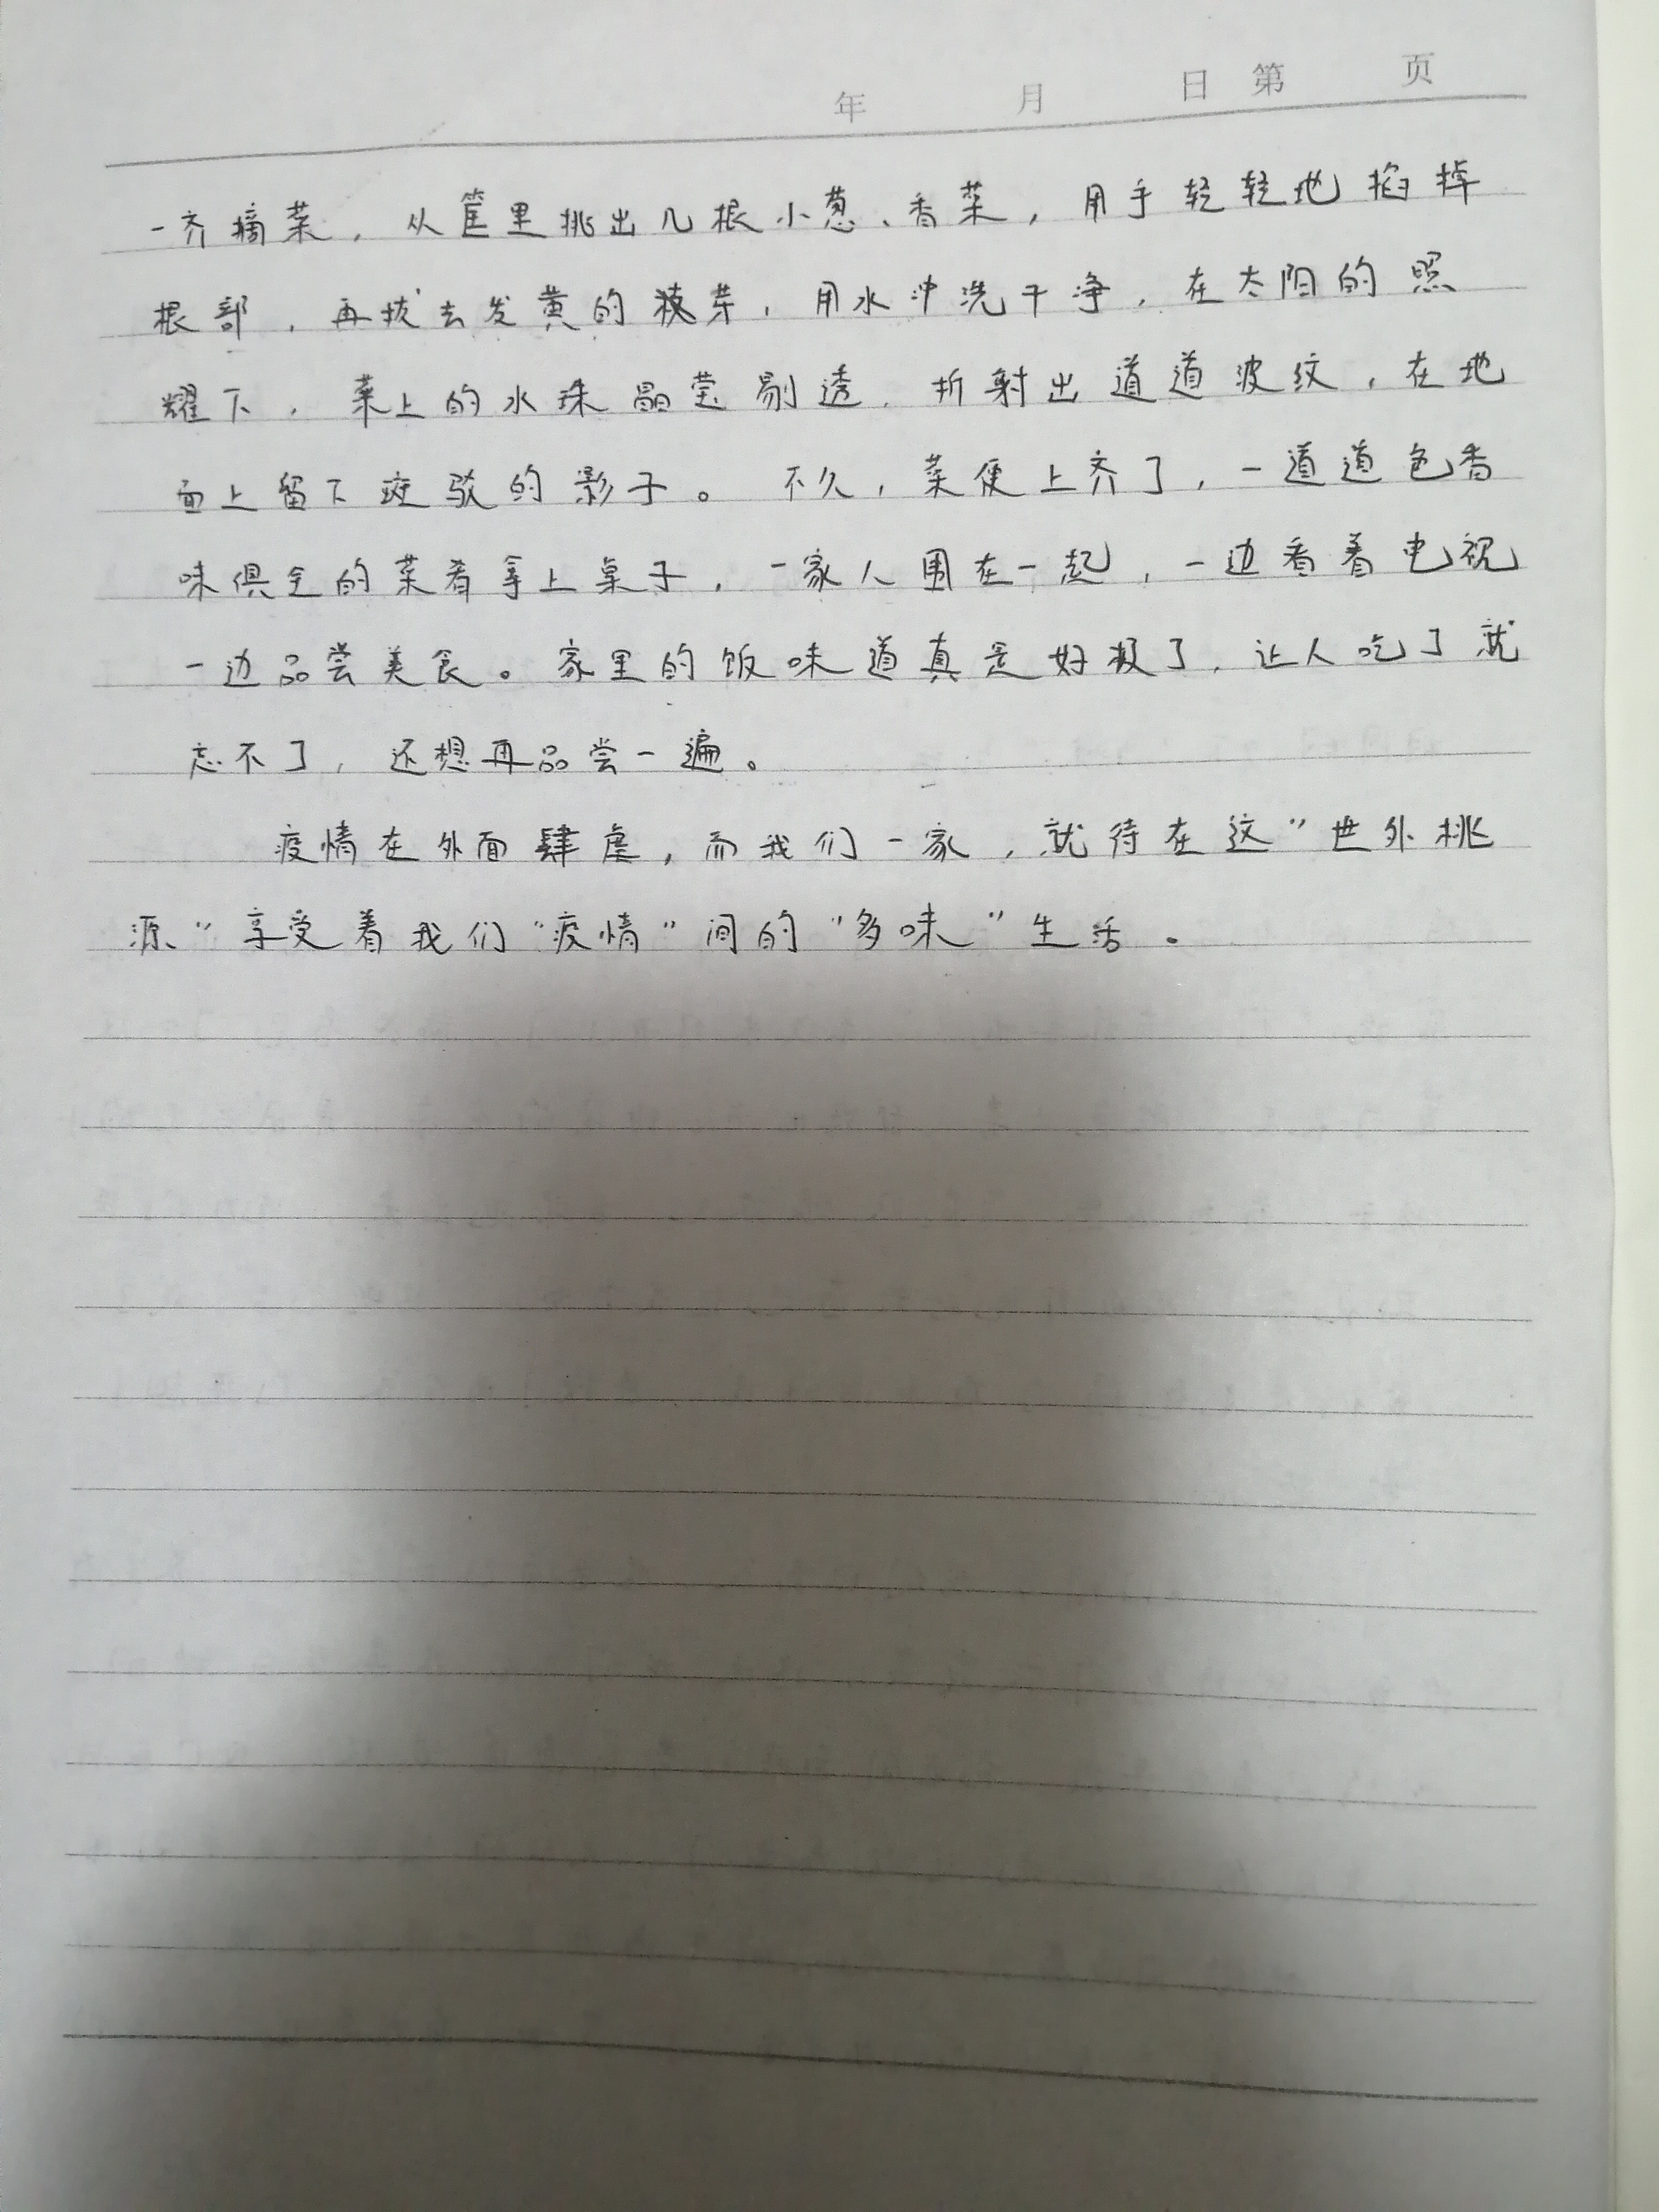 年 月 日 第 页
一齐摘菜，从筐里挑出几根小葱、香菜，用手轻轻地掐掉
根部，再拔去发黄的枝芽，用水冲洗干净，在太阳的照
耀下，菜上的水珠晶莹剔透，折射出道道波纹，在地
面上留下斑驳的影子。不久，菜便上齐了，一道道色香
味俱全的菜肴拿上桌子，一家人围在一起，一边看着电视
一边品尝美食。家里的饭味道真是好极了，让人吃了就
忘不了，还想再品尝一遍。
疫情在外面肆虐，而我们一家，就待在这”世外桃
源”享受着我们“疫情”间的“多味”生活。